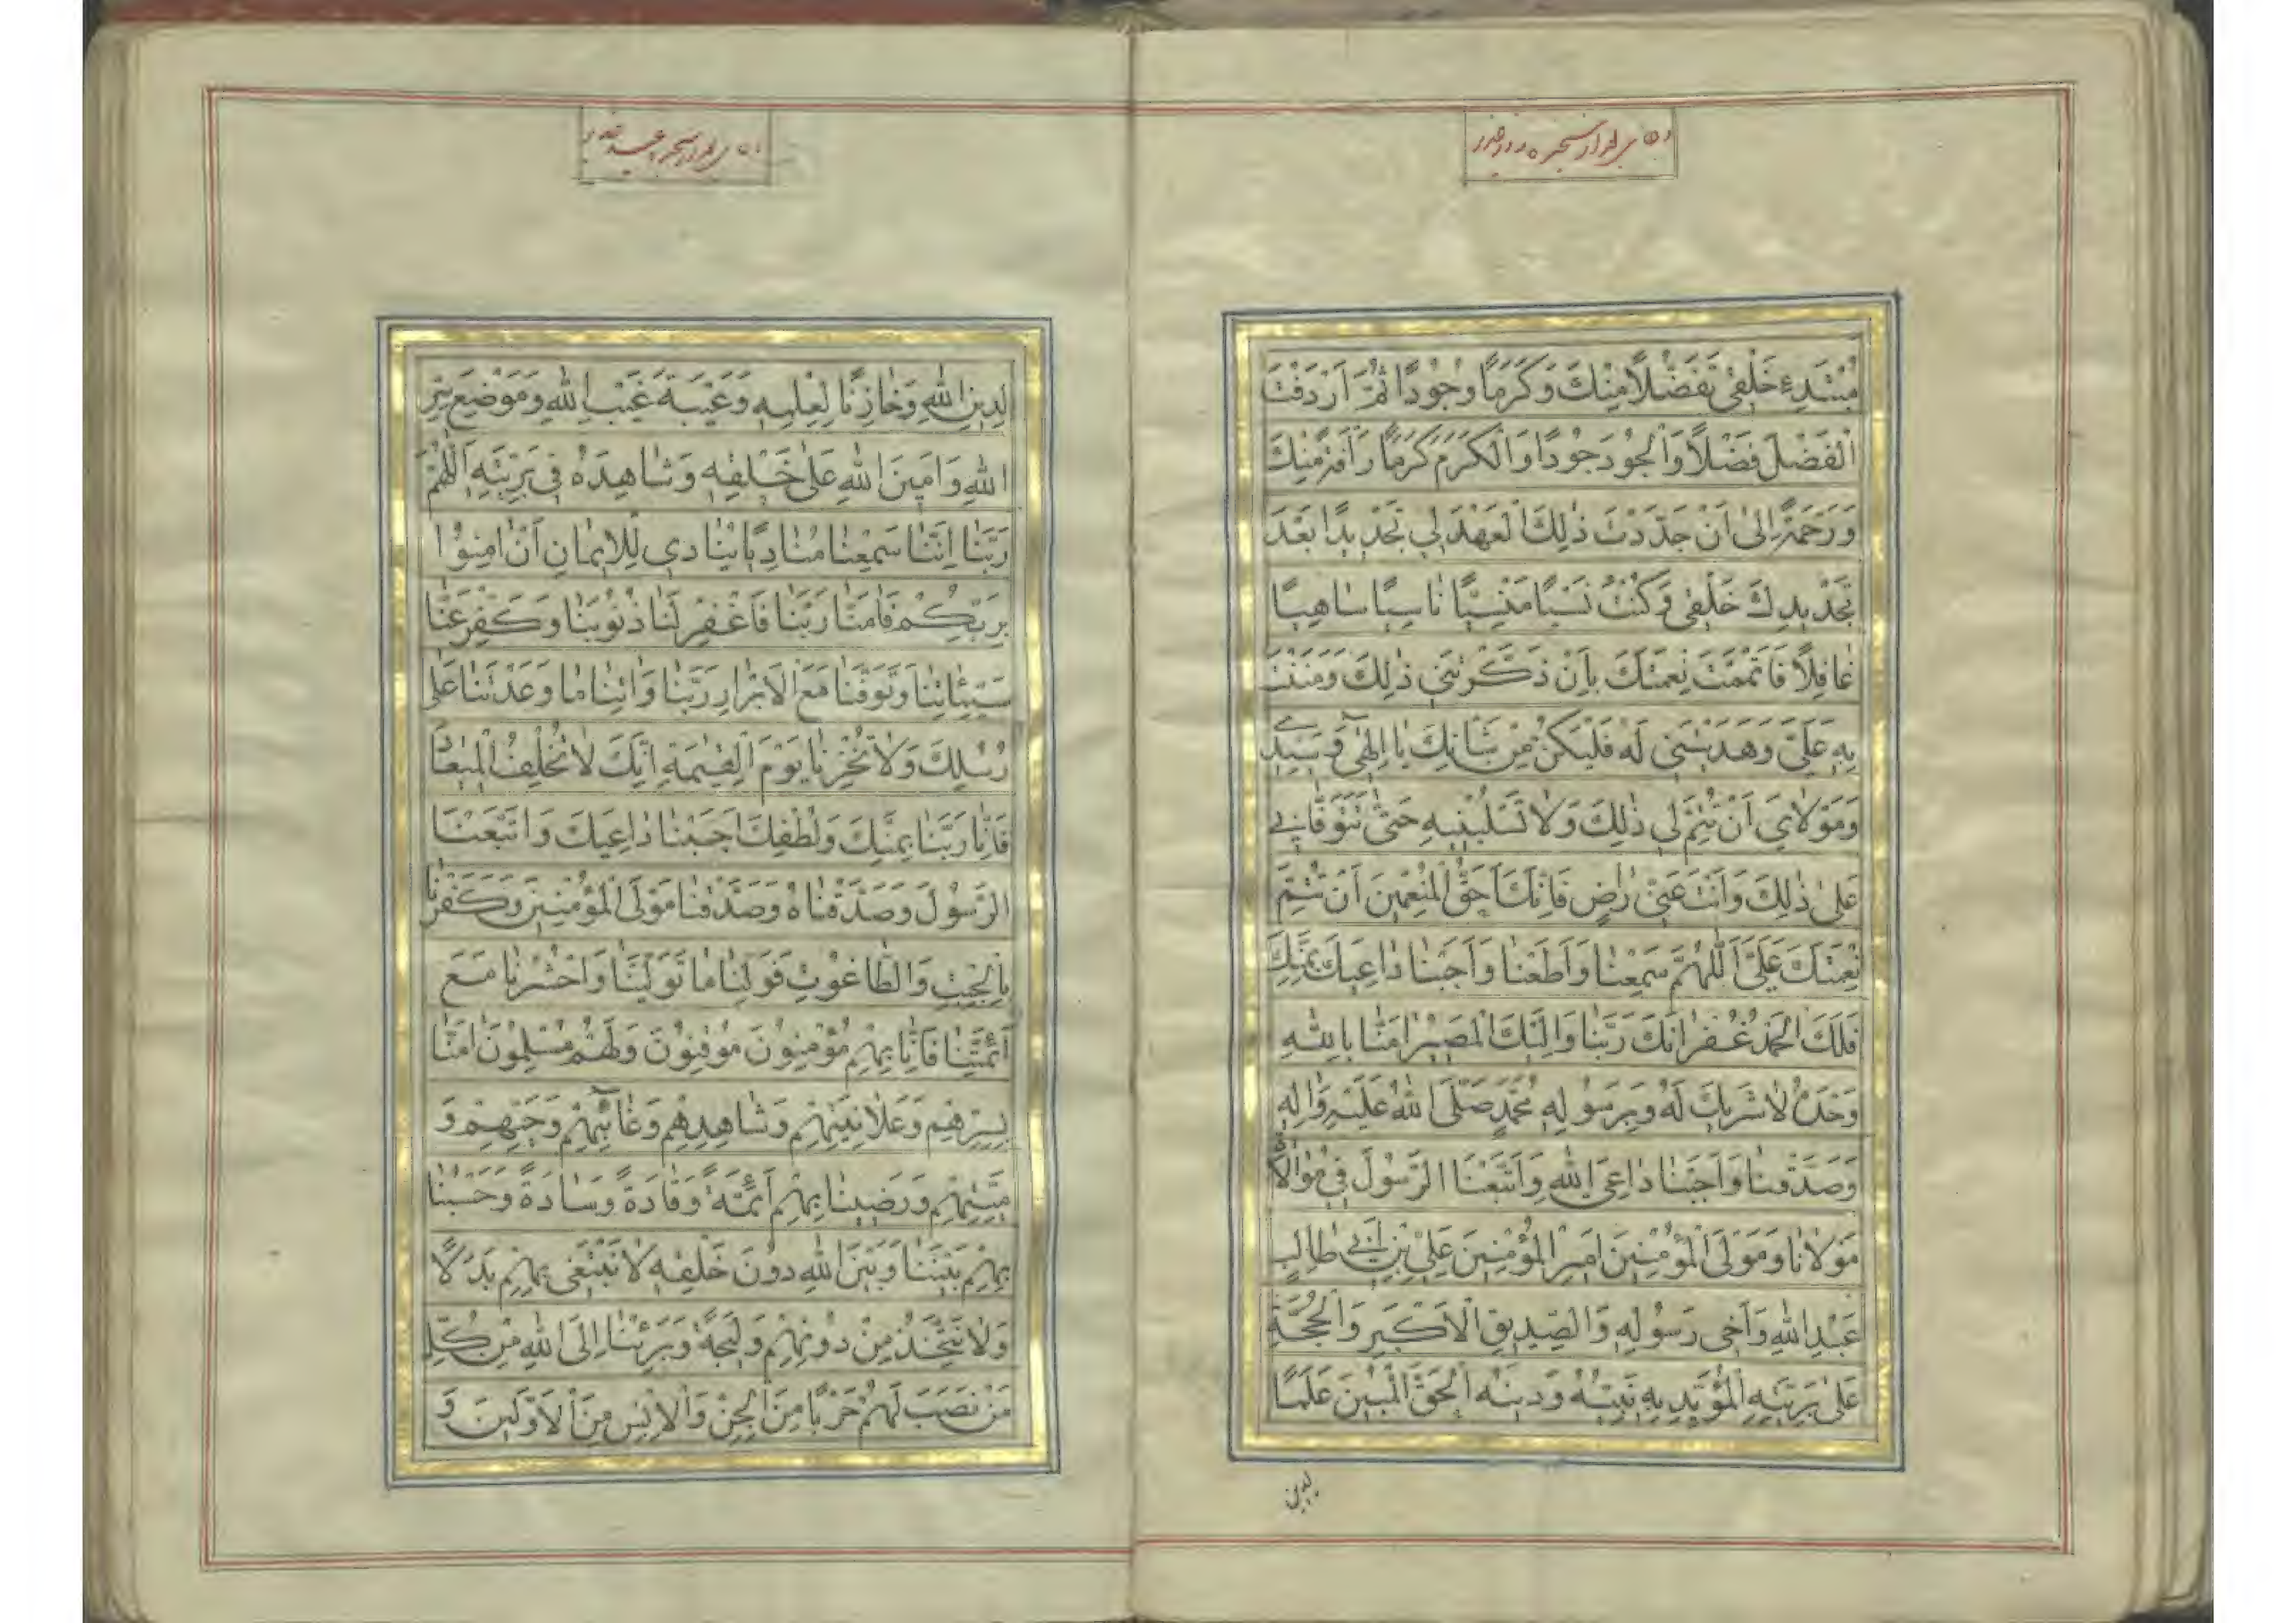 مُبْتَدِءِ خَلْقِی تَفَضُّلًا مِنْكَ وَكَرَمًا وَجُودًا ثُمَّ اَرْدَفْتَ
الْفَضْلَ فَضْلًا وَالْجُودَ جُودًا وَالْكَرَمَ كَرَمًا رَاْفَةً مِنْكَ
وَرَحْمَةً اِلىٰ اَنْ جَدَّدْتَ ذٰلِكَ الْعَهْدَ لِي تَجْدِيدًا بَعْدَ
تَجْدِيدِكَ خَلْقِی وَكُنْتُ نَسْيًا مَنْسِيًّا نٰاسِيًا سٰاهِيًا
غٰافِلًا فَاَتْمَمْتَ نِعْمَتَكَ بِاَنْ ذَكَّرْتَنِي ذٰلِكَ وَمَنَنْتَ
بِهِ عَلَيَّ وَهَدَيْتَنِی لَهُ فَلْيَكُنْ مِنْ شَاْنِكَ يٰا اِلٰهِی وَسَيِّدِی
وَمَوْلٰايَ اَنْ تُتِمَّ لِي ذٰلِكَ وَلٰا تَسْلُبْنِيهِ حَتّىٰ تَتَوَفّٰانِي
عَلىٰ ذٰلِكَ وَاَنْتَ عَنّی رٰاضٍ فَاِنَّكَ اَحَقُّ الْمُنْعِمِينَ اَنْ تُتِمَّ
نِعْمَتَكَ عَلَيَّ اَللّٰهُمَّ سَمِعْنٰا وَاَطَعْنٰا وَاَجَبْنٰا دٰاعِيَكَ بِمَنِّكَ
فَلَكَ الْحَمْدُ غُفْرٰانَكَ رَبَّنٰا وَاِلَيْكَ الْمَصِيرُ اٰمَنّٰا بِاللّٰهِ
وَحْدَهُ لٰا شَرِيكَ لَهُ وَبِرَسُولِهِ مُحَمَّدٍ صَلَّى اللّٰهُ عَلَيْهِ وَاٰلِهِ
وَصَدَّقْنٰا وَاَجَبْنٰا دٰاعِیَ اللّٰهِ وَاتَّبَعْنَا الرَّسُولَ فِي مُوٰالٰاةِ
مَوْلٰانٰا وَمَوْلَى الْمُؤْمِنِينَ اَمِيرِ الْمُؤْمِنِينَ عَلِيِّ بْنِ اَبِي طٰالِبٍ
عَبْدِ اللّٰهِ وَاَخِی رَسُولِهِ وَالصِّدِّيقِ الْاَكْبَرِ وَالْحُجَّةِ
عَلىٰ بَرِيَّتِهِ الْمُؤَيَّدِ بِهِ نَبِيَّهُ وَدِينَهُ الْحَقَّ الْمُبِينَ عَلَمًا
لدین
لِدِينِ اللّٰهِ وَخٰازِنًا لِعِلْمِهِ وَعَيْبَةَ غَيْبِ اللّٰهِ وَمَوْضِعَ سِرِّ
اللّٰهِ وَاَمِينَ اللّٰهِ عَلىٰ خَلْقِهِ وَشٰاهِدَهُ فِي بَرِيَّتِهِ اَللّٰهُمَّ
رَبَّنٰا اِنَّنٰا سَمِعْنٰا مُنٰادِيًا يُنٰادِي لِلْاِيمٰانِ اَنْ اٰمِنُوا
بِرَبِّكُمْ فَاٰمَنّٰا رَبَّنٰا فَاغْفِرْ لَنٰا ذُنُوبَنٰا وَكَفِّرْ عَنّٰا
سَيِّئٰاتِنٰا وَتَوَفَّنٰا مَعَ الْاَبْرٰارِ رَبَّنٰا وَاٰتِنٰا مٰا وَعَدْتَنٰا عَلىٰ
رُسُلِكَ وَلٰا تُخْزِنٰا يَوْمَ الْقِيٰمَةِ اِنَّكَ لٰا تُخْلِفُ الْمِيعٰادَ
فَاِنّٰا رَبَّنٰا بِمَنِّكَ وَلُطْفِكَ اَجَبْنٰا دٰاعِيَكَ وَاتَّبَعْنَا
الرَّسُولَ وَصَدَّقْنٰاهُ وَصَدَّقْنٰا مَوْلَى الْمُؤْمِنِينَ وَكَفَرْنٰا
بِالْجِبْتِ وَالطّٰاغُوتِ فَوَلِّنٰا مٰا تَوَلَّيْنٰا وَاحْشُرْنٰا مَعَ
اَئِمَّتِنٰا فَاِنّٰا بِهِمْ مُؤْمِنُونَ مُوقِنُونَ وَلَهُمْ مُسْلِمُونَ اٰمَنّٰا
بِسِرِّهِمْ وَعَلٰانِيَتِهِمْ وَشٰاهِدِهِمْ وَغٰائِبِهِمْ وَحَيِّهِمْ وَ
مَيِّتِهِمْ وَرَضِينٰا بِهِمْ اَئِمَّةً وَقٰادَةً وَسٰادَةً وَحَسْبُنٰا
بِهِمْ بَيْنَنٰا وَبَيْنَ اللّٰهِ دُونَ خَلْقِهِ لٰا نَبْتَغِی بِهِمْ بَدَلًا
وَلٰا نَتَّخِذُ مِنْ دُونِهِمْ وَلِيجَةً وَبَرِئْنٰا اِلَى اللّٰهِ مِنْ كُلِّ
مَنْ نَصَبَ لَهُمْ حَرْبًا مِنَ الْجِنِّ وَالْاِنْسِ مِنَ الْاَوَّلِينَ وَ